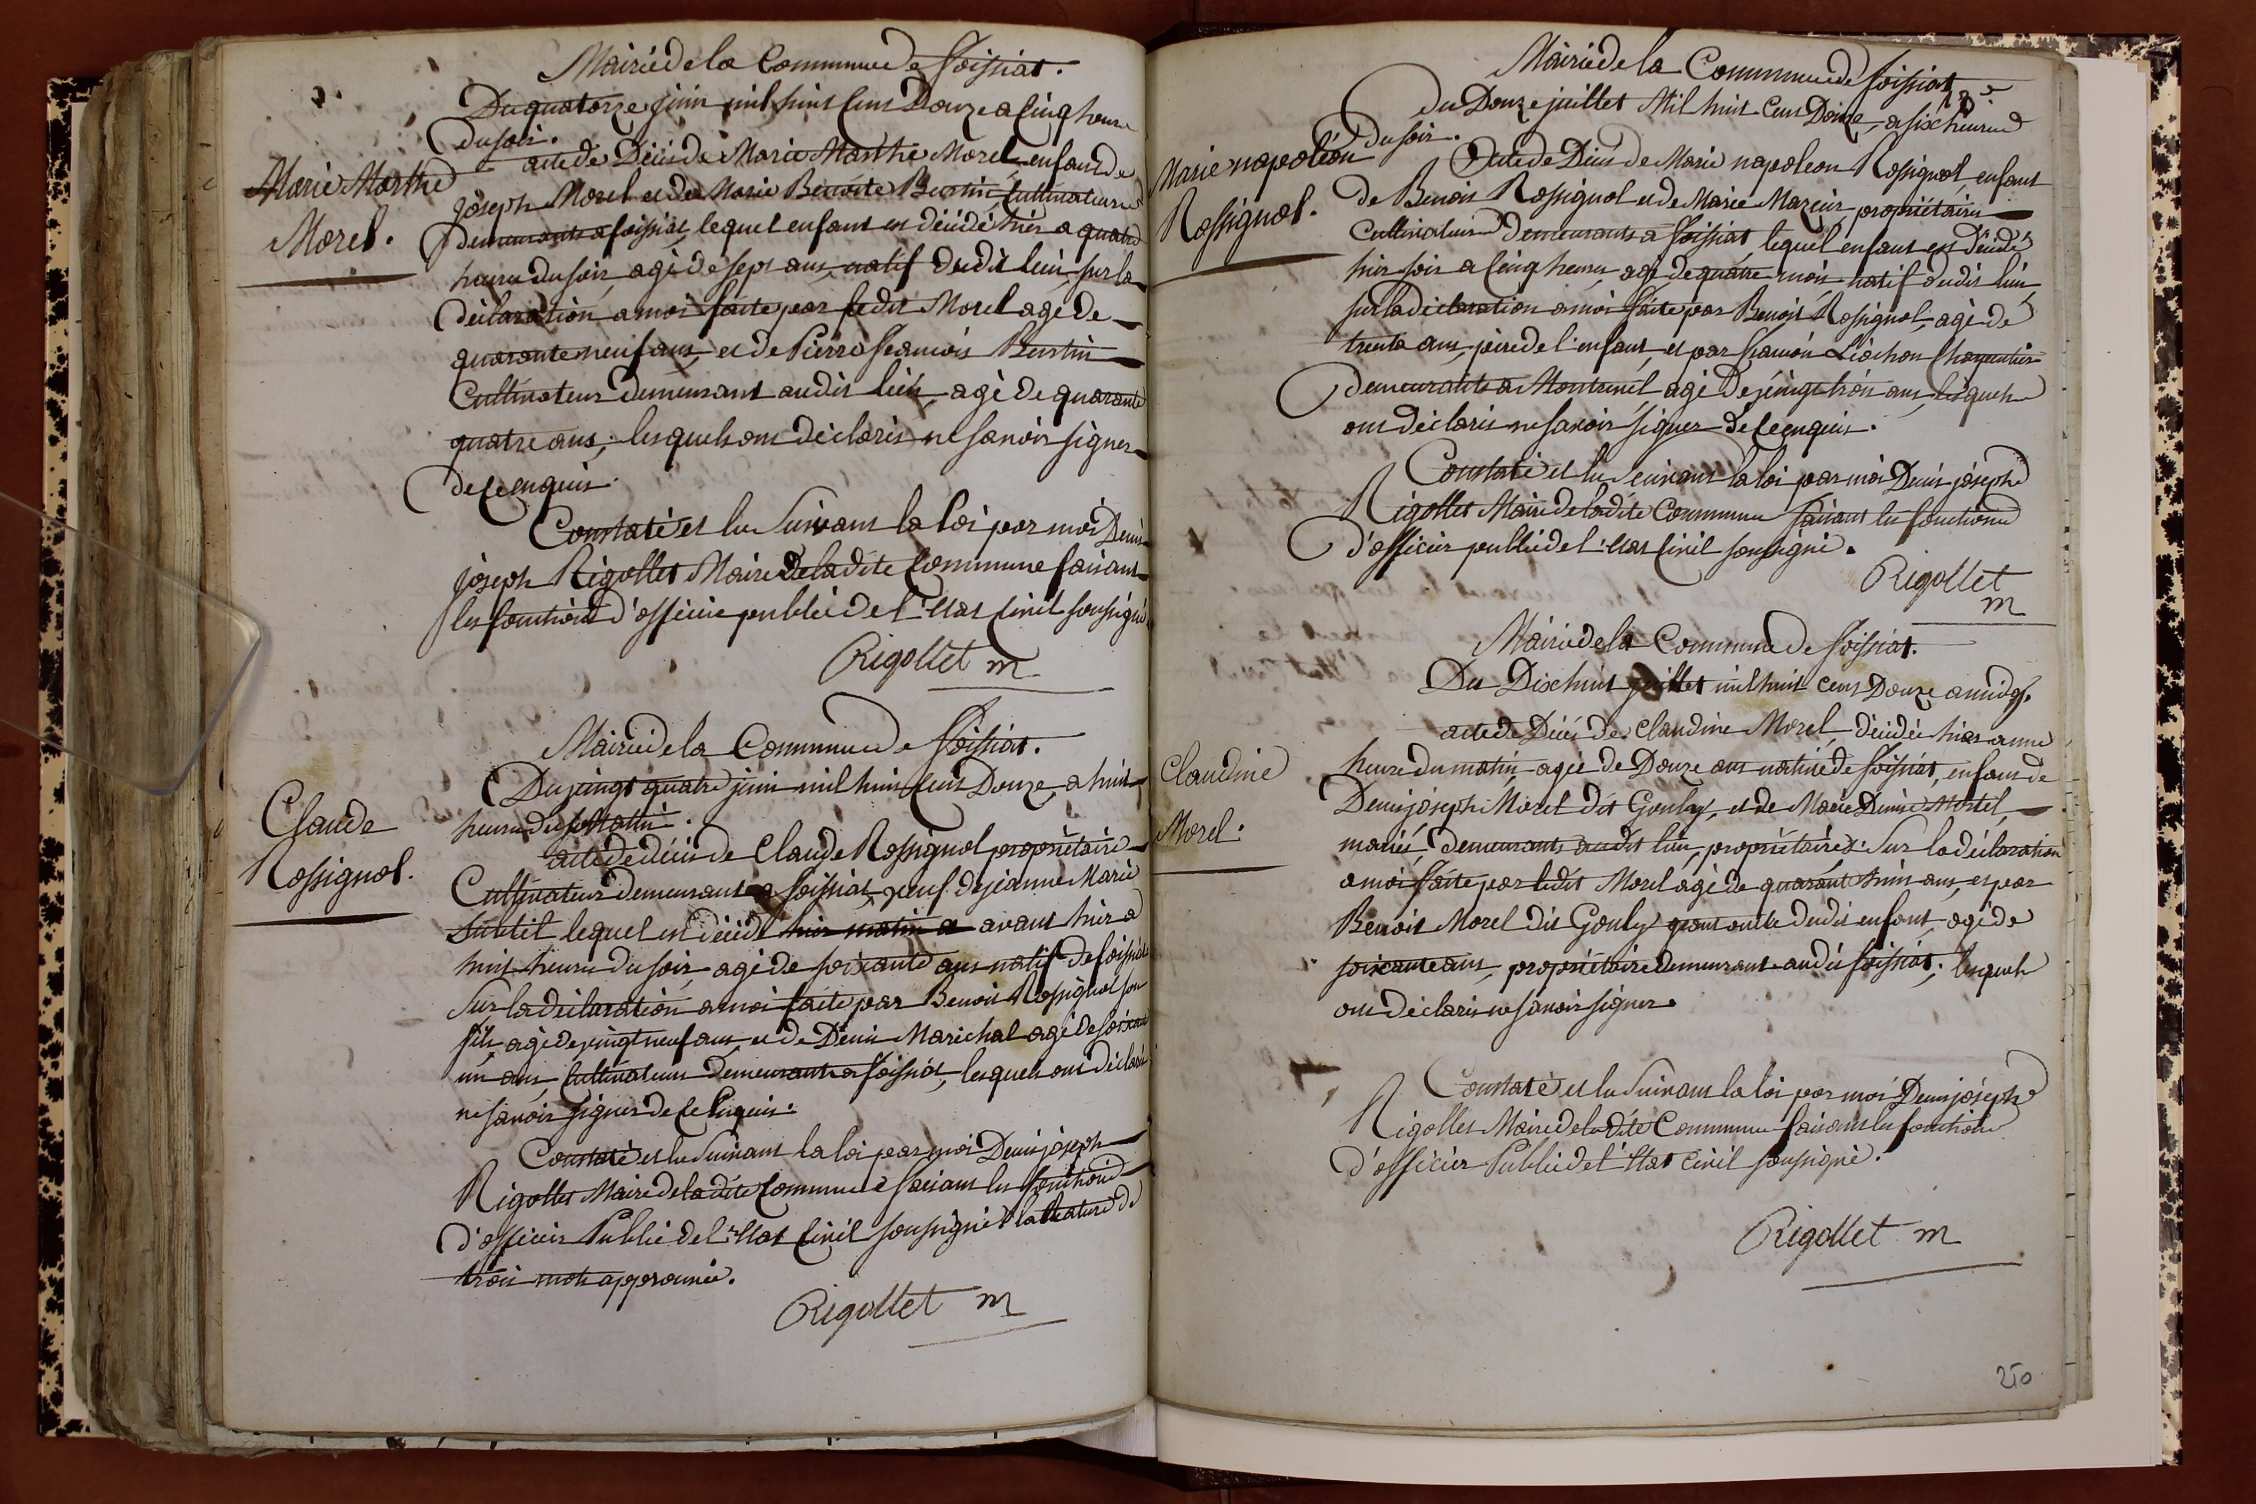 Mairie de la Commune de foissiat.
Du quatorze juin mil huit cent Douze a cinq heures
du soir.
acte de Décès de Marie Marthe Morel, enfant de
Marie Marthe
Morel.
joseph Morel et de Marie Benoite Bustin cultivateurs
demeurants a foissiat, lequel enfant est décédé hier a quatre
heures du soir, agé de sept ans, natif dudit lieu, sur la
déclaration a moi faite par ledit Morel agé de
quarante neuf ans, et de Pierre francois Bustin
Cultivateur demeurant audit lieu, agé de quarante
quatre ans, lesquels ont déclarés ne savoir signer
de ce enquis.
Constaté et lu suivant la loi par moi Denis
joseph Rigollet Maire de ladite Commune faisant
les fonctions d'officier public de l'Etat Civil soussigné
Rigollet m
Mairie de la Commune de foissiat.
Du vingt quatre juin mil huit cent Douze, a huit
heures du Matin.
Claude
Rossignol.
acte de décès de Claude Rossignol propriétaire
Cultivateur demeurant a foissiat, veuf de jeanne Marie
Subtil lequel est décédé hier matin a avant hier a
huit heures du soir, agé de soixante ans natif de foissiat
Sur la déclaration a moi faite par Benoit Rossignol son
fils, agé de vingt neuf ans, et de Denis Marichal agé de soixante
un ans, Cultivateurs demeurants a foissiat, lesquels ont déclarés
ne savoir signer de ce Enquis.
Constaté et lu Suivant la loi par moi Denis joseph
Rigollet Maire de ladite Commune faisant les fonctions
d'officier Public de l'Etat Civil soussigné la rature de
trois mots approuvée.
Rigollet m
Mairie de la Commune de foissiat
Du Douze juillet Mil huit Cent Douze, a six heures
du soir.
Marie napoléon
Rossignol.
Acte de Décès de Marie napoleon Rossignol, enfant
de Benoit Rossignol et de Marie Mazuir, propriétaires
cultivateurs demeurants a foissiat, lequel enfant est décédé
hier soir a cinq heures, agé de quatre mois natif dudit lieu
sur la déclaration a moi faite par Benoit Rossignol, agé de
trente ans, père de l'enfant, et par francois Liochon Charpentier
demeurants a Montrevel agé de vingt trois ans, lesquels
ont déclarés ne savoir signer de ce enquis.
Constaté et lu suivant la loi par moi Denis joseph
Rigollet Maire de ladite Commune faisant les fonctions
d'officier public de l'Etat Civil soussigné.
Rigollet
m
Mairie de la Commune de foissiat.
Du Dix huit juillet mil huit cent Douze a midy.
acte de Décès de Claudine Morel, décédée hier a une
Claudine
Morel.
heure du matin agée de Douze ans native de foissiat, enfant de
Denis joseph Morel dit Gouly, et de Marie Denise Mortel,
mariés, demeurants audit lieu, propriétaires. Sur la déclaration
a moi faite par ledit Morel agé de quarante huit ans, et par
Benoit Morel dit Gouly grand oncle dudit enfant, agé de
soixante ans, propriétaire demeurant audit foissiat; lesquels
ont déclarés ne savoir signer.
Constaté et lu Suivant la loi par moi Denis joseph
Rigollet Maire de ladite Commune faisant les fonctions
d'officier Public de l'Etat Civil soussigné.
Rigollet m
250